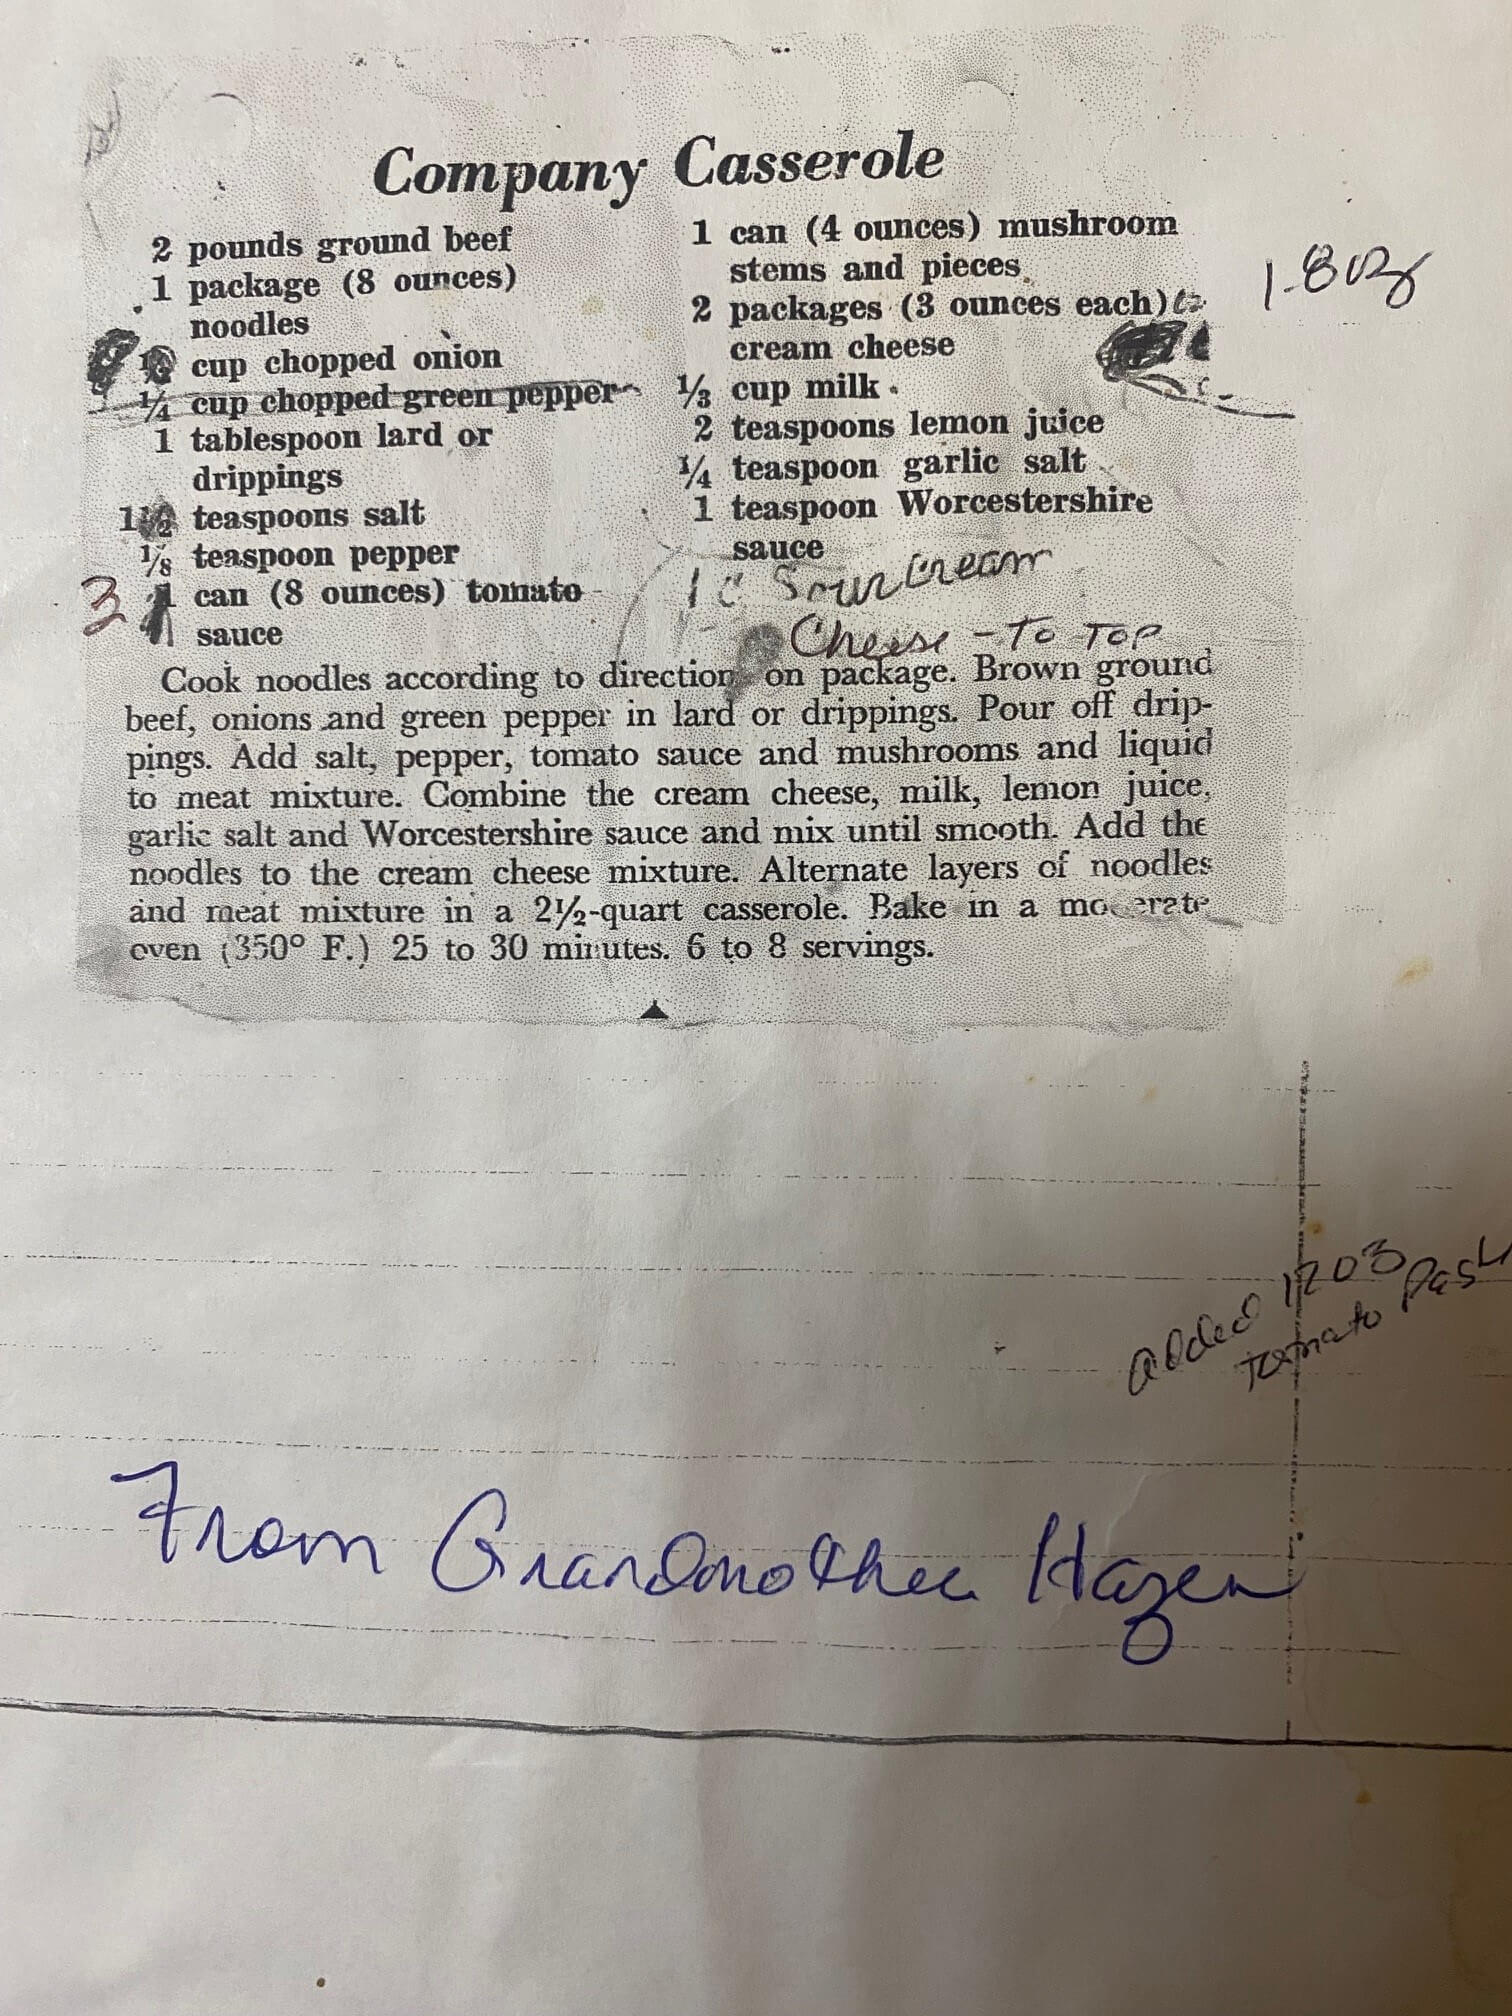 Company Casserole
2 pounds ground beef
1 package (8 ounces)
noodles
cup chopped onion
1/4 cup chopped green pepper
1 tablespoon lard or
drippings
1 teaspoons salt
1/8 teaspoon pepper
3 1 can (8 ounces) tomato
sauce
1 can (4 ounces) mushroom
stems and pieces
2 packages (3 ounces each)
cream cheese
1-8 oz
1/3 cup milk
2 teaspoons lemon juice
1/4 teaspoon garlic salt
1 teaspoon Worcestershire
sauce
1 c Sour Cream
Cheese - To Top
Cook noodles according to direction on package. Brown ground
beef, onions and green pepper in lard or drippings. Pour off drip-
pings. Add salt, pepper, tomato sauce and mushrooms and liquid
to meat mixture. Combine the cream cheese, milk, lemon juice,
garlic salt and Worcestershire sauce and mix until smooth. Add the
noodles to the cream cheese mixture. Alternate layers of noodles
and meat mixture in a 2½-quart casserole. Bake in a moderate
oven (350° F.) 25 to 30 minutes. 6 to 8 servings.
added 12 oz
tomato Past
From Grandmother Hazen